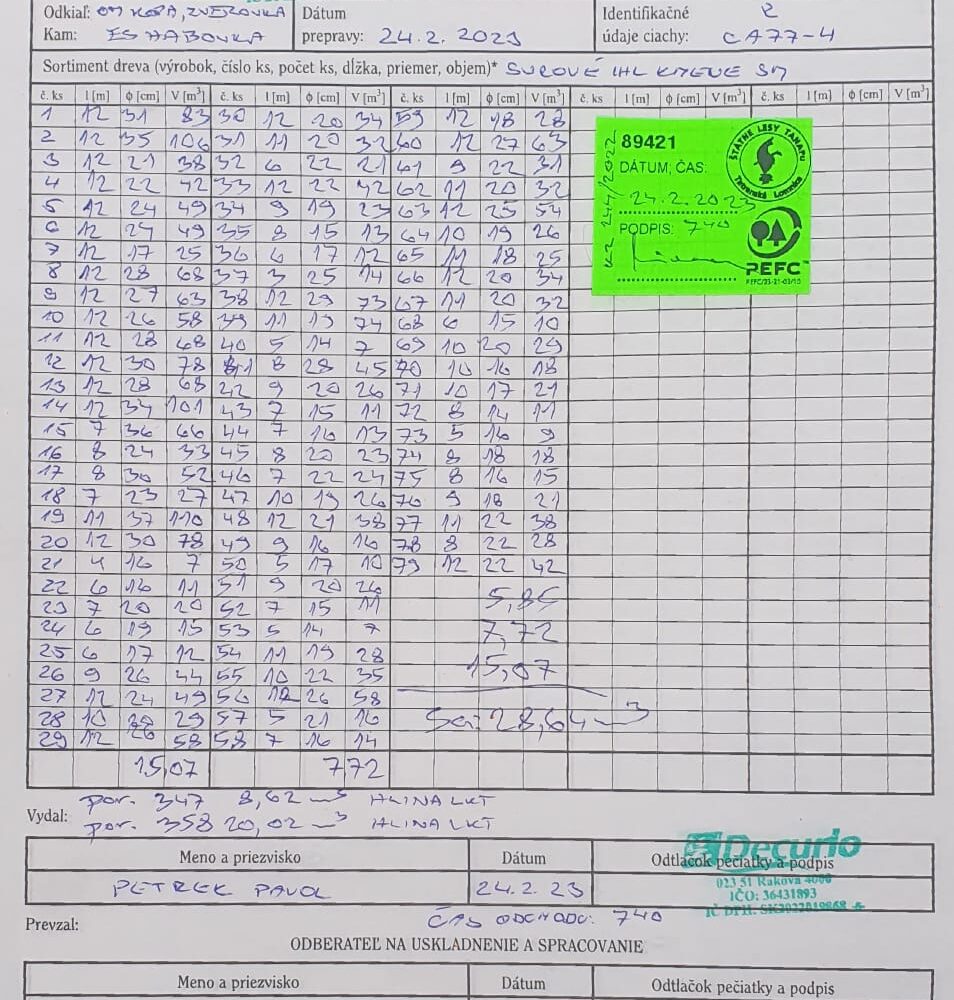 Odkiaľ: OM KOPA, ZVEROVKA Dátum Identifikačné 2
Kam: ES HABOVKA prepravy: 24.2.2023 údaje ciachy: CA77-4
Sortiment dreva (výrobok, číslo ks, počet ks, dĺžka, priemer, objem)* SUROVÉ IHL KMENE SM
č. ks l [m] ϕ [cm] V [m³] č. ks l [m] ϕ [cm] V [m³] č. ks l [m] ϕ [cm] V [m³] č. ks l [m] ϕ [cm] V [m³] č. ks l [m] ϕ [cm] V [m³]
1 12 31 83 30 12 20 34 59 12 18 28
2 12 35 106 31 11 20 32 60 12 27 63
3 12 21 38 32 6 22 21 61 9 22 31
4 12 22 42 33 12 22 42 62 11 20 32
5 12 24 49 34 9 19 23 63 12 25 54
6 12 24 49 35 8 15 13 64 10 19 26
7 12 17 25 36 6 17 12 65 11 18 25
8 12 28 68 37 3 25 14 66 12 20 34
9 12 27 63 38 12 29 73 67 11 20 32
10 12 26 58 39 11 19 74 68 6 15 10
11 12 28 68 40 5 14 7 69 10 20 29
12 12 30 78 41 8 28 45 70 10 16 18
13 12 28 68 42 9 20 26 71 10 17 21
14 12 34 101 43 7 15 11 72 8 14 11
15 7 36 66 44 7 16 13 73 5 16 9
16 8 24 33 45 8 20 23 74 8 18 18
17 8 30 52 46 7 22 24 75 8 16 15
18 7 23 27 47 10 19 26 76 9 18 21
19 11 37 110 48 12 21 38 77 11 22 38
20 12 30 78 49 9 16 16 78 8 22 28
21 4 16 7 50 5 17 10 79 12 22 42
22 6 16 11 51 9 20 26
5,85
23 7 20 20 52 7 15 11
24 6 19 15 53 5 14 7 7,72
25 6 17 12 54 11 19 28
15,07
26 9 26 44 55 10 22 35
27 12 24 49 56 12 26 58
28 10 20 29 57 5 21 16 28,64 m³
29 12 26 58 58 7 16 14
15,07 7,72
89421
DÁTUM, ČAS:
24.2.2023
PODPIS: 740
ŠTÁTNE LESY TANAPU
Tatranská Lomnica
PEFC
por. 347 8,62 m³ HLINA LKT
Vydal: por. 358 20,02 m³ HLINA LKT
Decurio
Meno a priezvisko Dátum Odtlačok pečiatky a podpis
023 51 Raková 4000
PETREK PAVOL 24.2.23 IČO: 36431893
IČ DPH: SK2022019868
Prevzal: ČAS ODCHODU: 740
ODBERATEĽ NA USKLADNENIE A SPRACOVANIE
Meno a priezvisko Dátum Odtlačok pečiatky a podpis